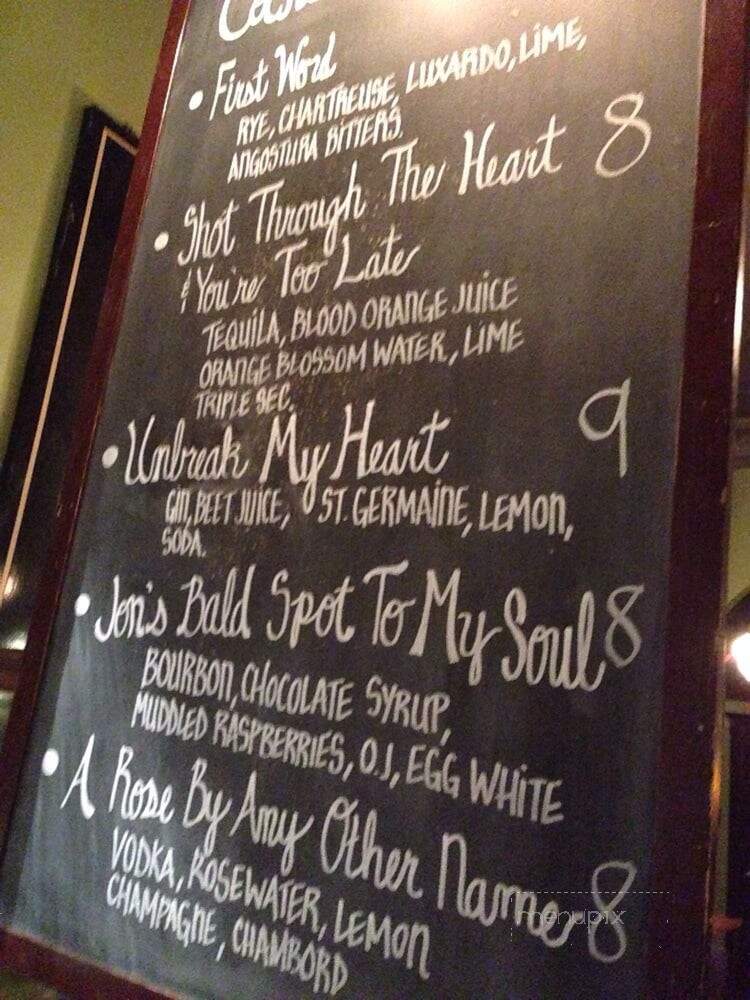 • First Word
RYE, CHARTREUSE, LUXARDO, LIME,
ANGOSTURA BITTERS.
• Shot Through The Heart 8
& You're Too Late
TEQUILA, BLOOD ORANGE JUICE
ORANGE BLOSSOM WATER, LIME
TRIPLE SEC.
• Unbreak My Heart 9
GIN, BEET JUICE, ST. GERMAINE, LEMON,
SODA.
• Jon's Bald Spot To My Soul 8
BOURBON, CHOCOLATE SYRUP,
MUDDLED RASPBERRIES, O.J, EGG WHITE
• A Rose By Any Other Name 8
VODKA, ROSEWATER, LEMON
CHAMPAGNE, CHAMBORD
menupix